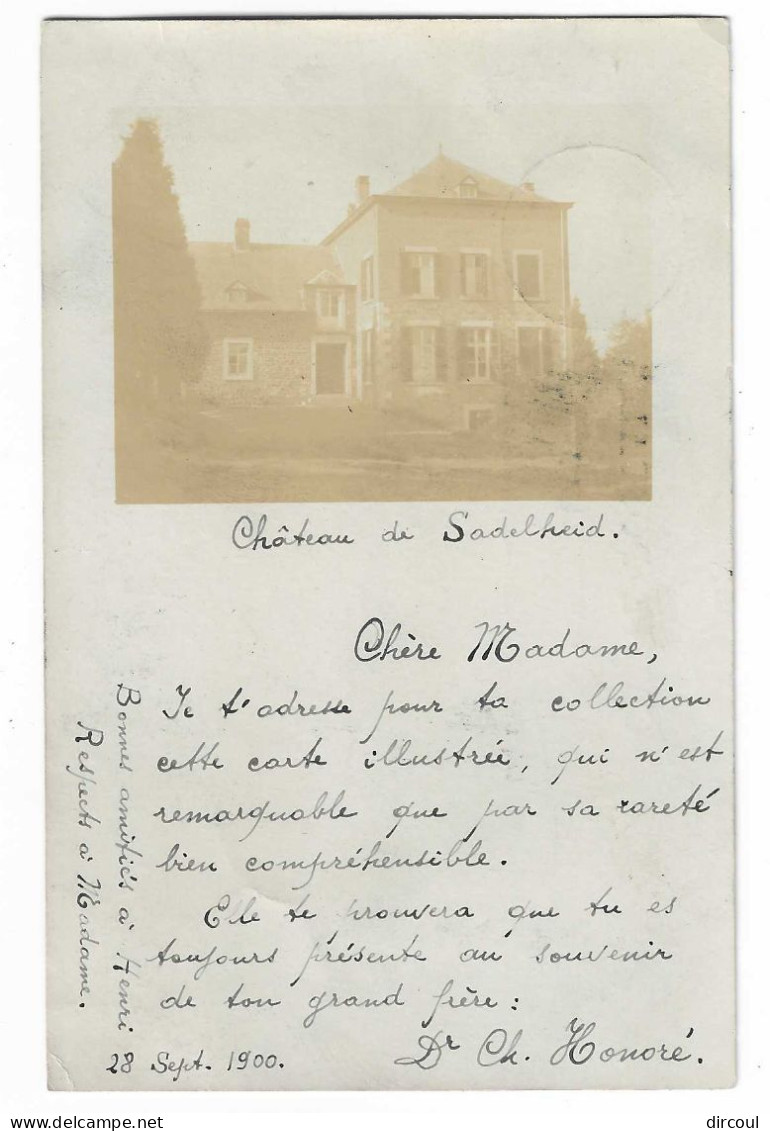 Château de Sadelheid.
Chère Madame,
Je t'adresse pour ta collection
cette carte illustrée, qui n'est
remarquable que par sa rareté
bien compréhensible.
Elle te prouvera que tu es
toujours présente au souvenir
de ton grand frère :
Dr Ch. Honoré.
28 Sept. 1900.
Bonnes amitiés à Henri
Respects à Madame.
dircoul
delcampe.net